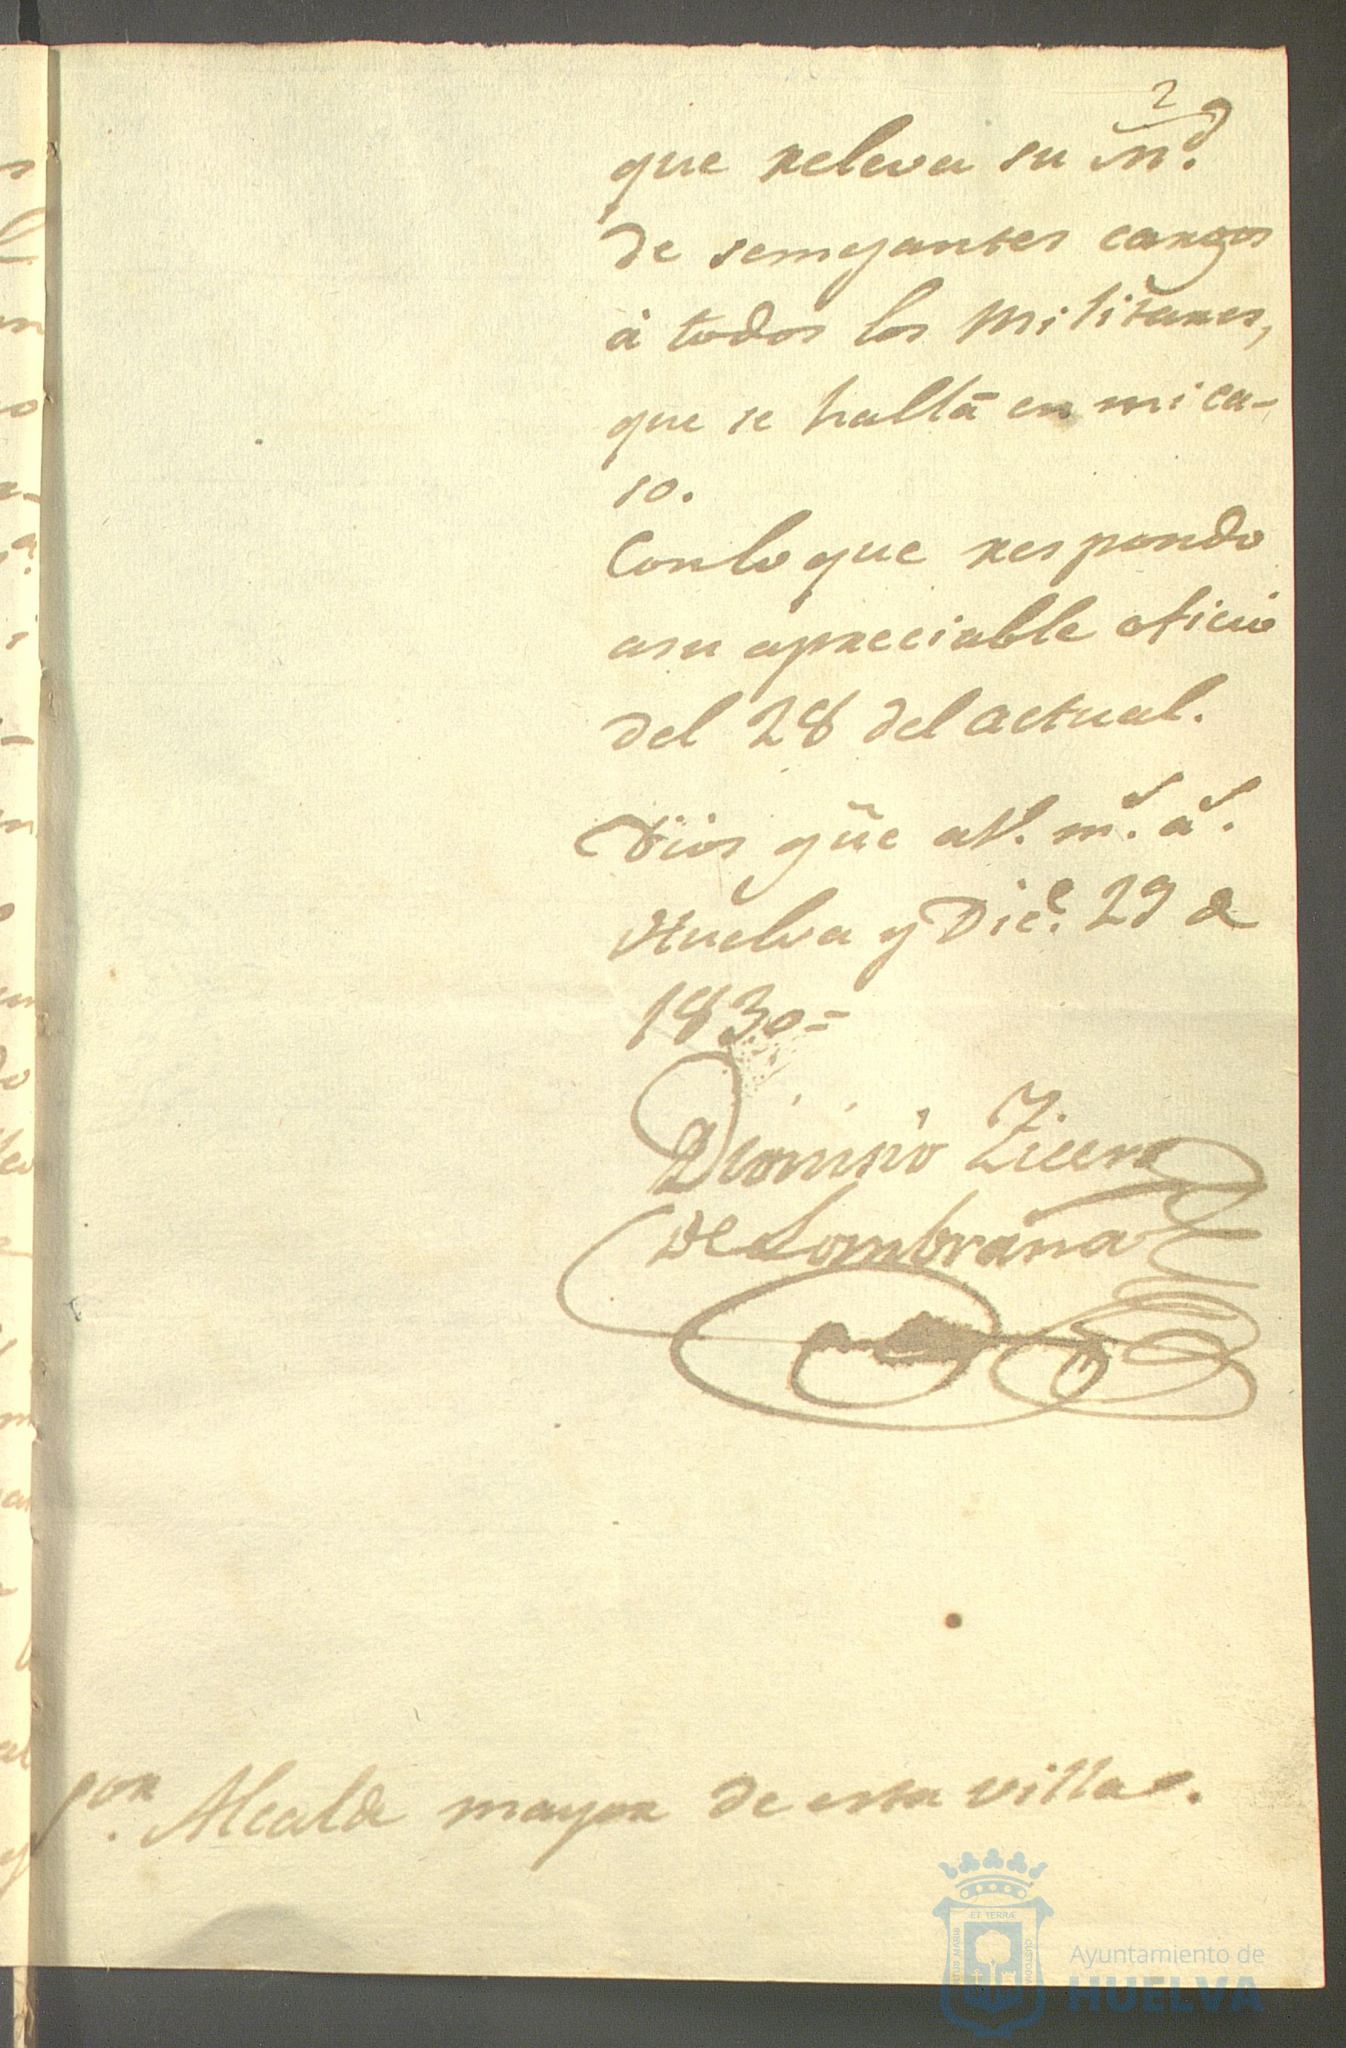 2
que releva su M.d
de semejantes cargos
á todos los Militares,
que se hallā en mi ca-
so.
Conlo que respondo
asu apreciable oficio
del 28 del actual.
Dios gũe aV. m.s a.s
Huelva y Dic.e 29 de
1830=
Dionisio
de Lombraña
S.or Alcalde mayor de esta villa.
ET TERRÆ
CUSTODIA
Ayuntamiento de
HUELVA